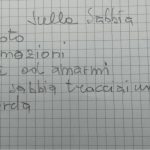 sulla sabbia
oto
mozioni
ad amarmi
sabbia tracciai un
rda